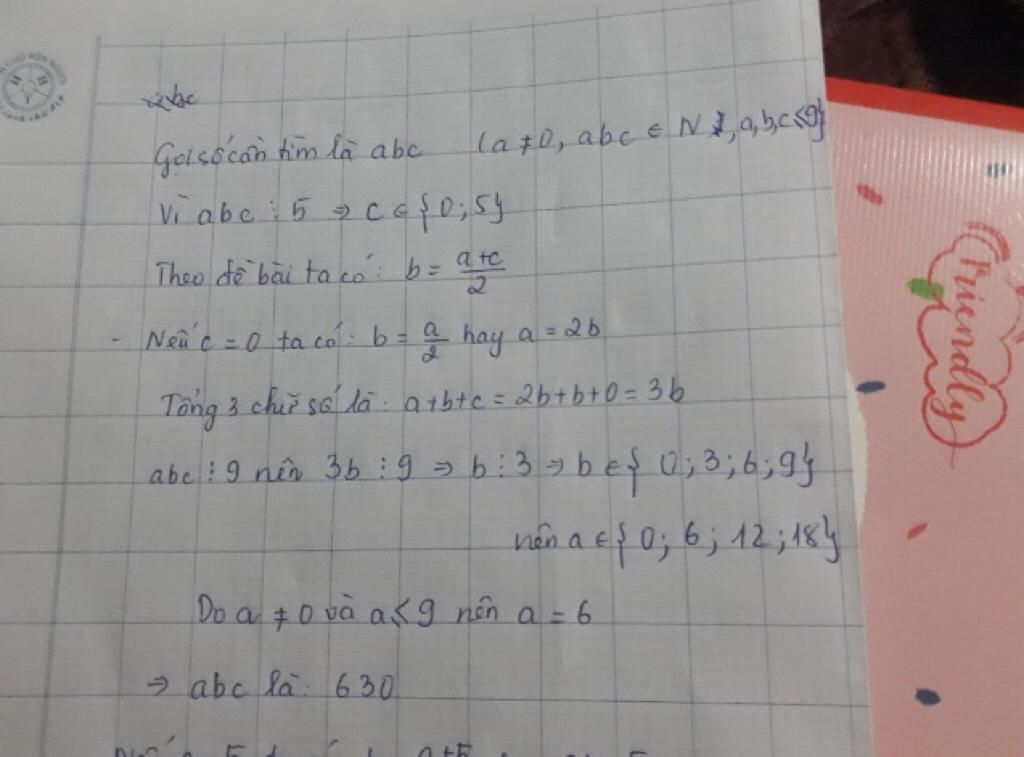 Gọi số cần tìm là abc (a ≠ 0, abc ∈ N, a,b,c ≤ 9}
Vì abc ⋮ 5 ⇒ c ∈ {0;5}
Theo đề bài ta có: b = (a+c)/2
- Nếu c = 0 ta có: b = a/2 hay a = 2b
Tổng 3 chữ số là: a+b+c = 2b+b+0 = 3b
abc ⋮ 9 nên 3b ⋮ 9 ⇒ b ⋮ 3 ⇒ b ∈ { 0; 3; 6; 9}
nên a ∈ { 0; 6; 12; 18}
Do a ≠ 0 và a ≤ 9 nên a = 6
⇒ abc là: 630
Friendly